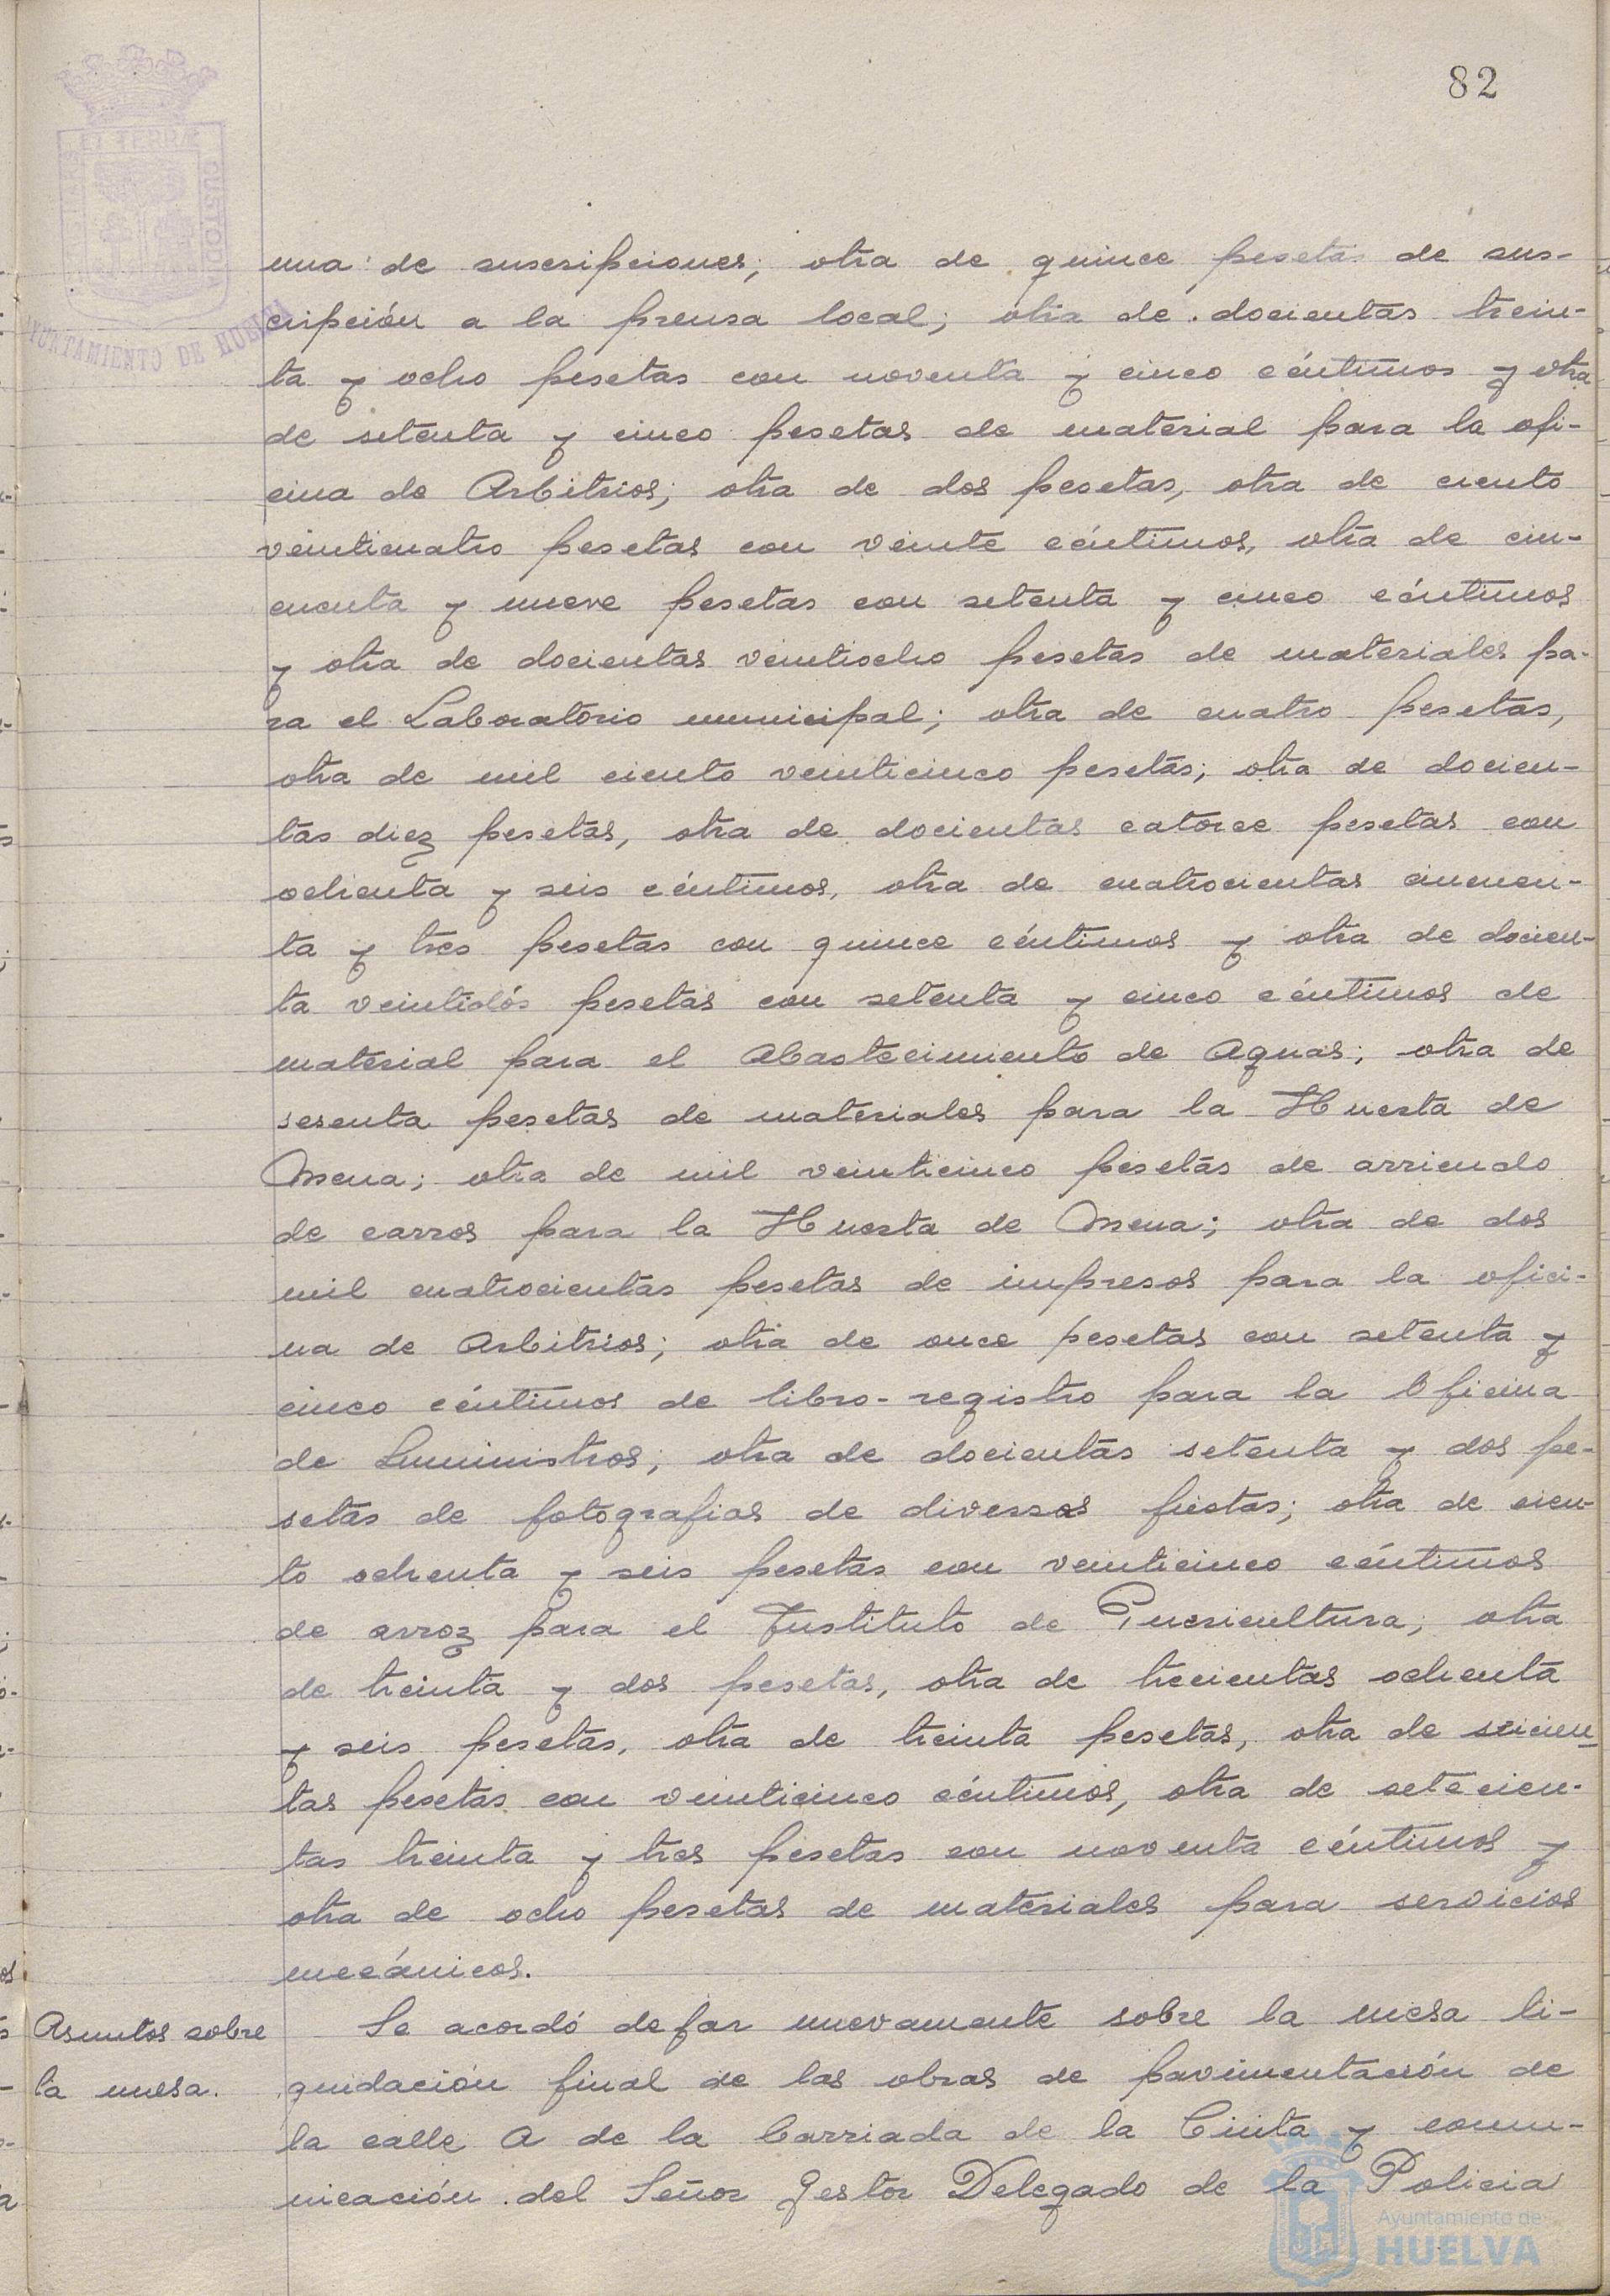 82
una de suscripciones; otra de quince pesetas de sus-
cripción a la prensa local; otra de docientas trein-
ta y ocho pesetas con noventa y cinco céntimos y otra
de setenta y cinco pesetas de material para la ofi-
cina de Arbitrios; otra de dos pesetas, otra de ciento
veinticuatro pesetas con veinte céntimos, otra de cin-
cuenta y nueve pesetas con setenta y cinco céntimos
y otra de docientas veintiocho pesetas de materiales pa-
ra el Laboratorio municipal; otra de cuatro pesetas,
otra de mil ciento veinticinco pesetas; otra de docien-
tas diez pesetas, otra de docientas catorce pesetas con
ochenta y seis céntimos, otra de cuatrocientas cincuen-
ta y tres pesetas con quince céntimos y otra de docien-
ta veintidós pesetas con setenta y cinco céntimos de
material para el Abastecimiento de Aguas; otra de
sesenta pesetas de materiales para la Huerta de
Mena; otra de mil veinticinco pesetas de arriendo
de carros para la Huerta de Mena; otra de dos
mil cuatrocientas pesetas de impresos para la ofici-
na de Arbitrios; otra de once pesetas con setenta y
cinco céntimos de libro-registro para la Oficina
de Suministros; otra de docientas setenta y dos pe-
setas de fotografias de diversas fiestas; otra de cien-
to ochenta y seis pesetas con veinticinco céntimos
de arroz para el Instituto de Puericultura; otra
de treinta y dos pesetas, otra de trecientas ochenta
y seis pesetas, otra de treinta pesetas, otra de seicien-
tas pesetas con veinticinco céntimos, otra de setecien-
tas treinta y tres pesetas con noventa céntimos y
otra de ocho pesetas de materiales para servicios
mecánicos.
Asuntos sobre
la mesa.
Se acordó dejar nuevamente sobre la mesa li-
quidación final de las obras de pavimentación de
la calle A de la barriada de la Cinta y comu-
nicación del Señor Gestor Delegado de la Policia
AYUNTAMIENTO DE HUELVA
Ayuntamiento de
HUELVA